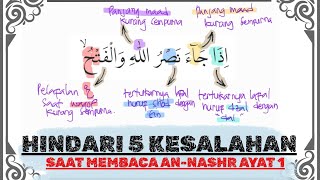 Panjang maad kurang sempurna
Panjang maad kurang sempurna
إِذَا جَاءَ نَصْرُ اللَّهِ وَالْفَتْحُ
Pelapalan saat kurang sempurna.
tertukarnya lafal huruf shad dengan sin
tertukarnya lafal huruf dzal dengan
HINDARI 5 KESALAHAN
SAAT MEMBACA AN-NASHR AYAT 1